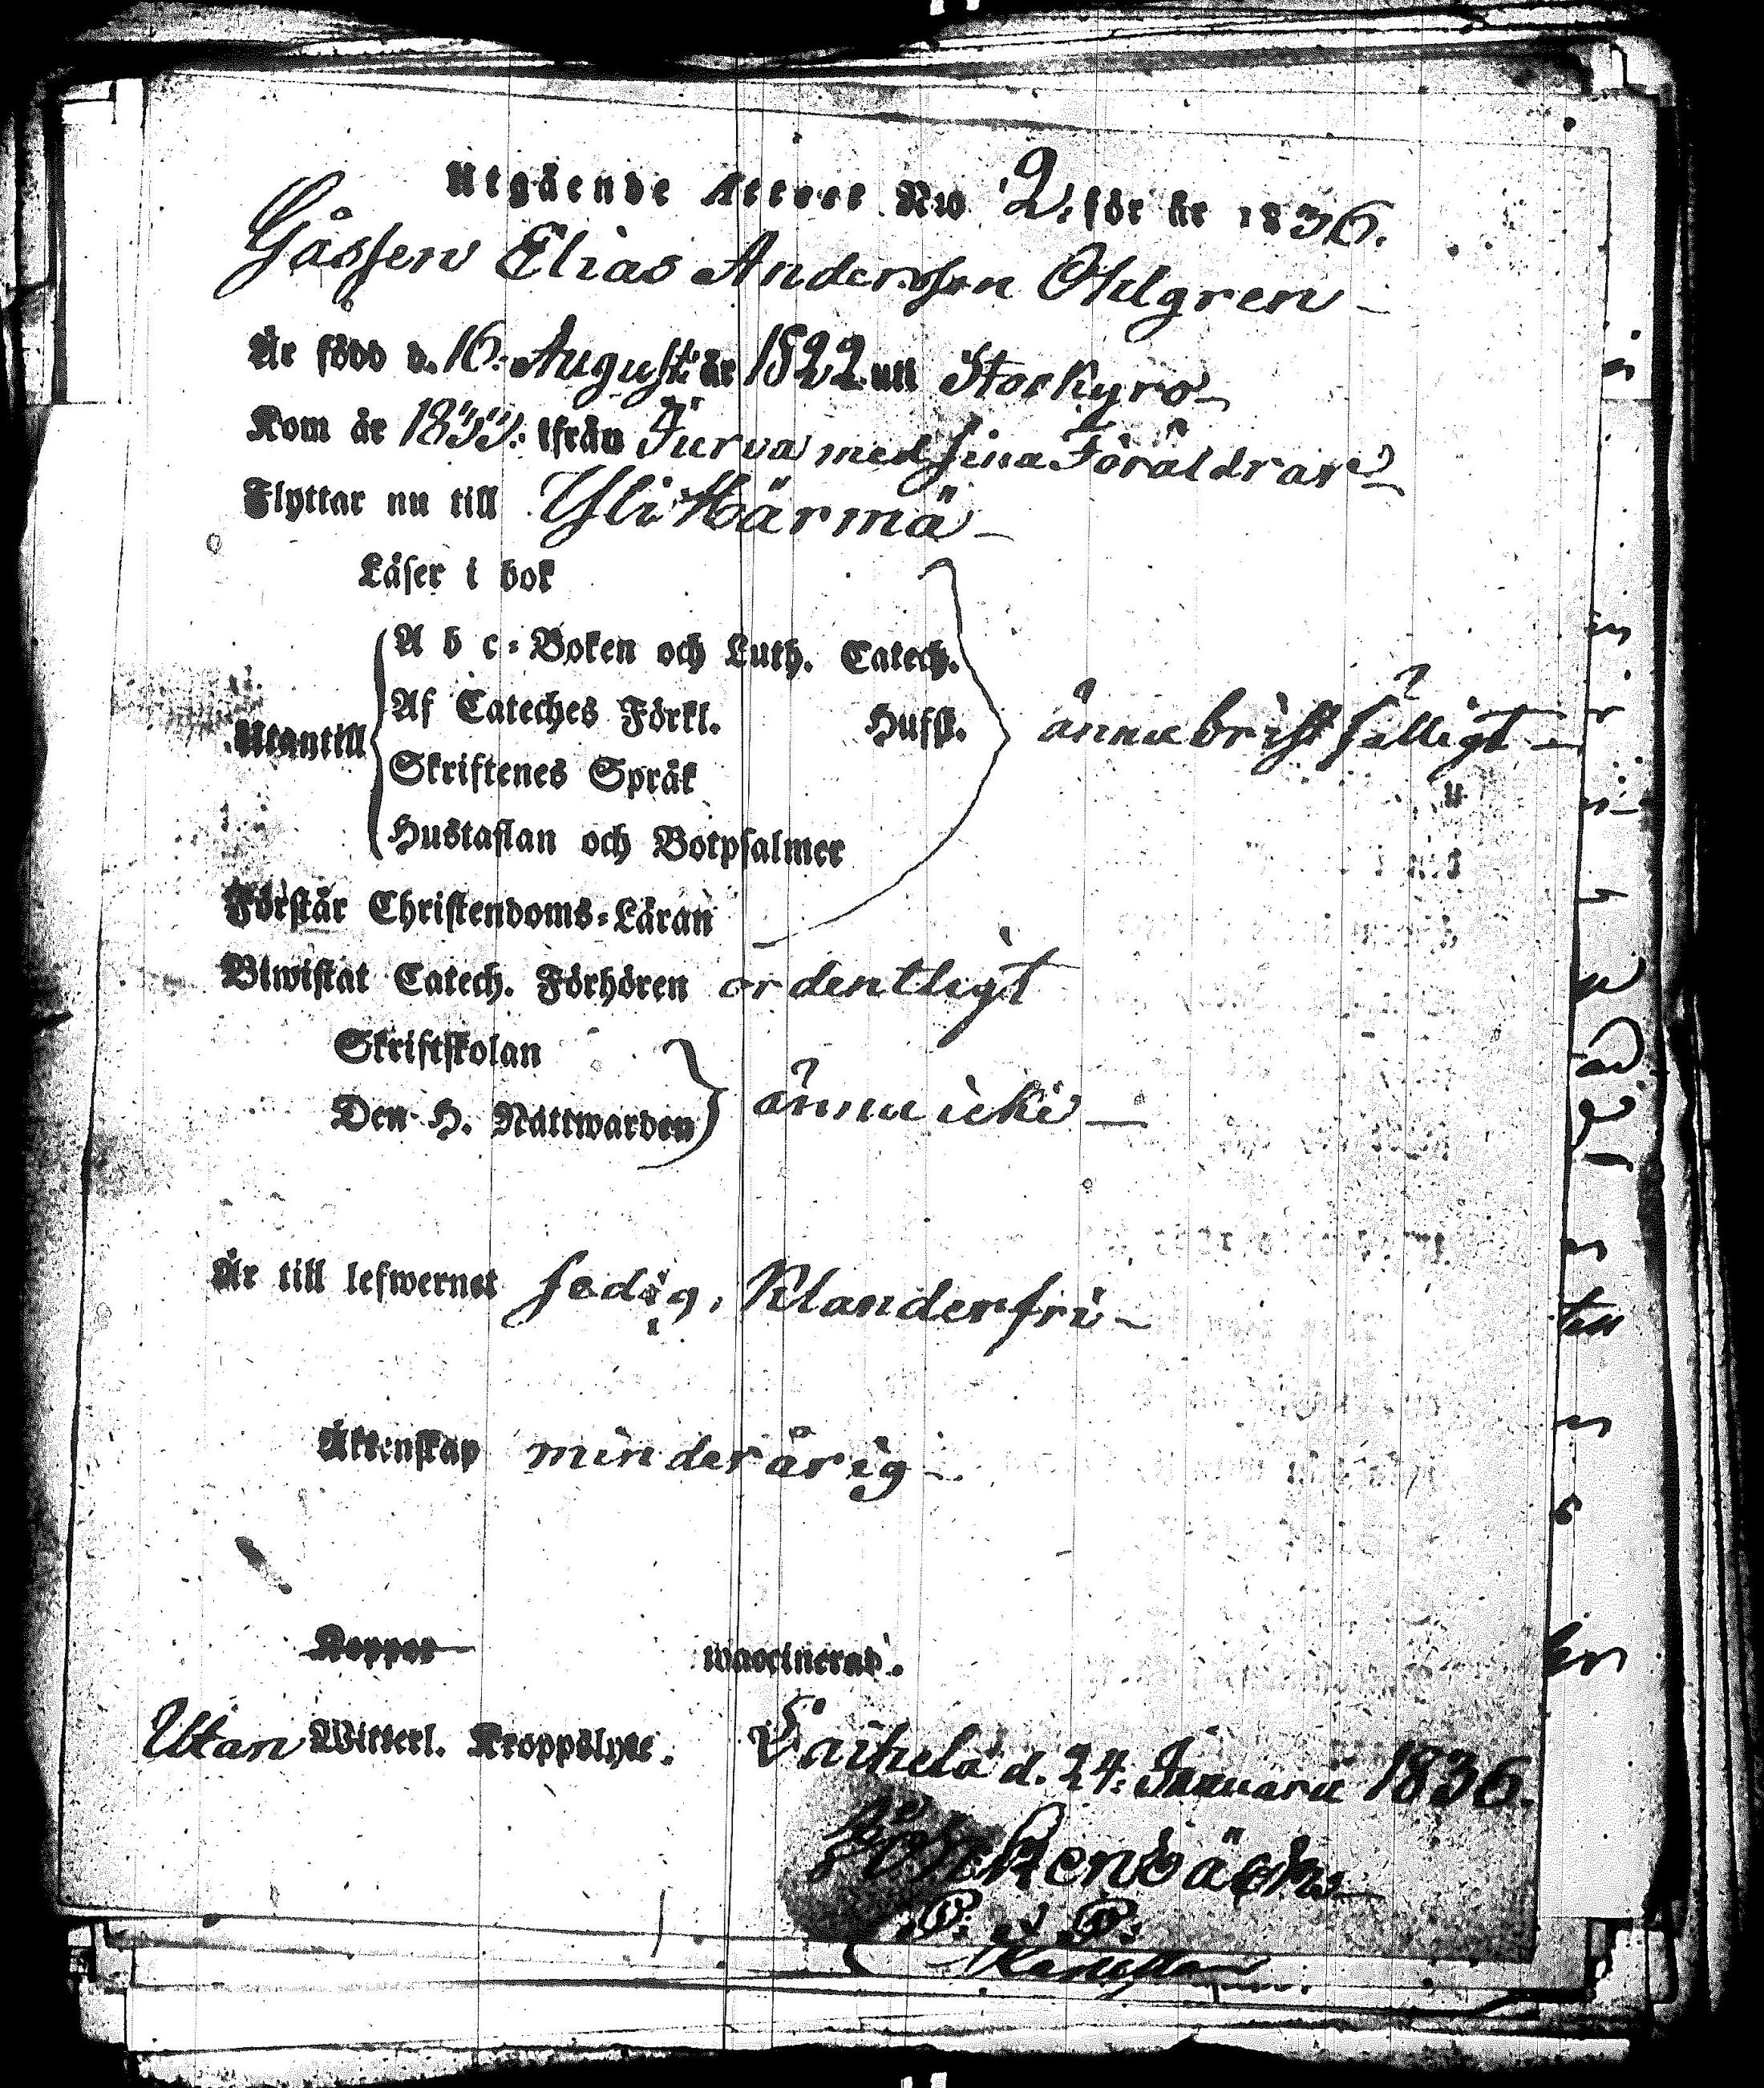 Utgående Attest No 2. för år 1836.
Gossen Elias Andersson Ohlgren
Är född d. 16. Augusti år 1822. uti Storkyro
Kom år 1833. ifrån Jurva med sina Föräldrar
Flyttar nu till Yli Härmä
Läser i bok
A b c-Boken och Luth. Catech.
Utantill Af Cateches Förkl. Husfl. ännu bristfälligt
Skriftenes Språk
Hustaflan och Botpsalmer
Förstår Christendoms-Läran
Biwistat Catech. Förhören ordentligt
Skriftskolan
Den H. Nattwarden ännu icke
Är till lefwernet sedig, Klanderfri
Äktenskap minderårig
Koppor waccinerad.
Utan Witterl. Kroppslyte. Laihela d. 24. Januarii 1836.